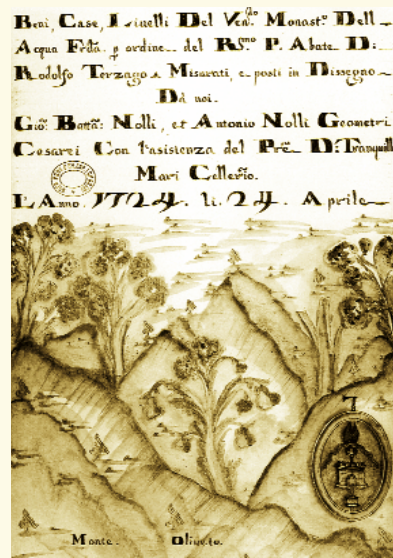 Beni, Case, Livelli Del Ven.do Monast.o Dell
Acqua Frda. p ordine del R.smo P. Abate D:
Rodolfo Terzago Misurati, e posti in Dissegno
Da noi.
Gio: Batta: Nolli, et Antonio Nolli Geometri
Cesarei Con l'asistenza del Pre. D: Tranquill
Mari Cellerio.
L'Anno 1724. li. 24. Aprile
7
Monte Oliveto.